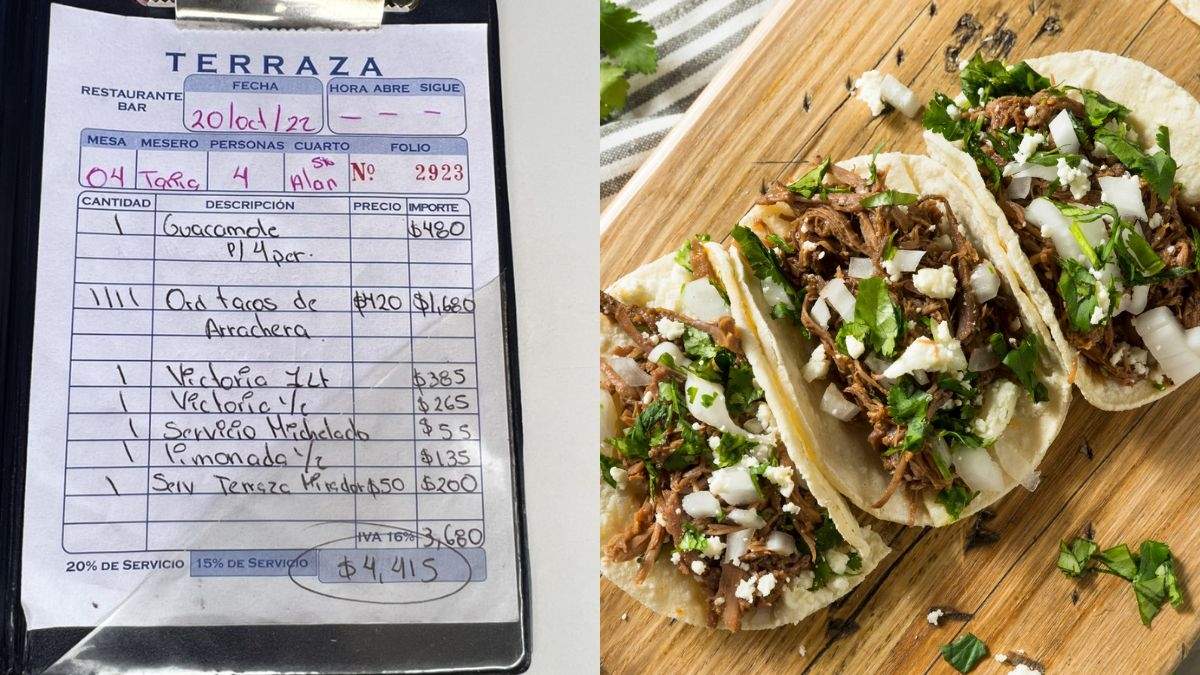 TERRAZA
RESTAURANTE BAR
FECHA HORA ABRE SIGUE
20/oct/22 — — —
MESA MESERO PERSONAS CUARTO FOLIO
04 Tania 4 Sr Alan Nº 2923
CANTIDAD DESCRIPCIÓN PRECIO IMPORTE
1 Guacamole $480
P/4 per.
1111 Ord tacos de $420 $1,680
Arrachera
1 Victoria 1Lt $385
1 Victoria 1/2 $265
1 Servicio Michelado $55
1 limonada 1/2 $135
1 Serv Terraza Mirador $50 $200
IVA 16% 3,680
20% DE SERVICIO 15% DE SERVICIO $4,415